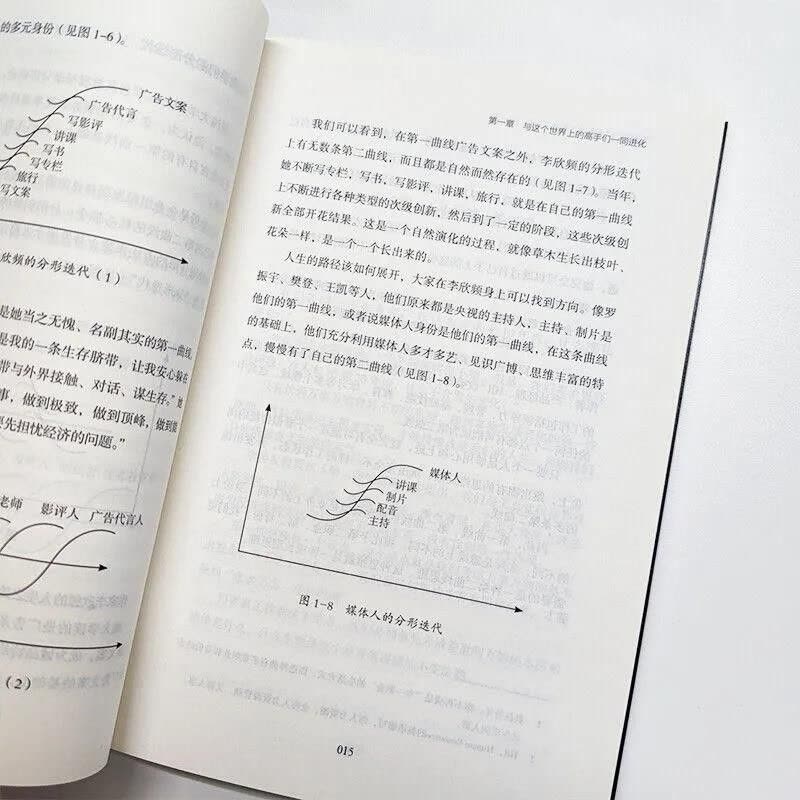 的多元身份（见图1-6）。
广告文案
广告代言
写影评
讲课
写书
写专栏
旅行
写文案
欣频的分形迭代（1）
是她当之无愧、名副其实的第一曲线，
是我的一条生存脐带，让我安心躲在
带与外界接触、对话、谋生存。”她
事，做到极致，做到顶峰，做到能
要先担忧经济的问题。”
老师 影评人 广告代言人
（2）
第一章 与这个世界上的高手们一同进化
我们可以看到，在第一曲线广告文案之外，李欣频的分形迭代
上有无数条第二曲线，而且都是自然而然存在的（见图1-7）。当年，
她不断写专栏，写书、写影评、讲课、旅行，就是在自己的第一曲线
上不断进行各种类型的次级创新，然后到了一定的阶段，这些次级创
新全部开花结果。这是一个自然演化的过程，就像草木生长出枝叶、
花朵一样，是一个一个长出来的。
人生的路径该如何展开，大家在李欣频身上可以找到方向。像罗
振宇、樊登、王凯等人，他们原来都是央视的主持人，主持、制片是
他们的第一曲线，或者说媒体人身份是他们的第一曲线，在这条曲线
的基础上，他们充分利用媒体人多才多艺、见识广博、思维丰富的特
点，慢慢有了自己的第二曲线（见图1-8）。
媒体人
讲课
制片
配音
主持
图1-8 媒体人的分形迭代
015